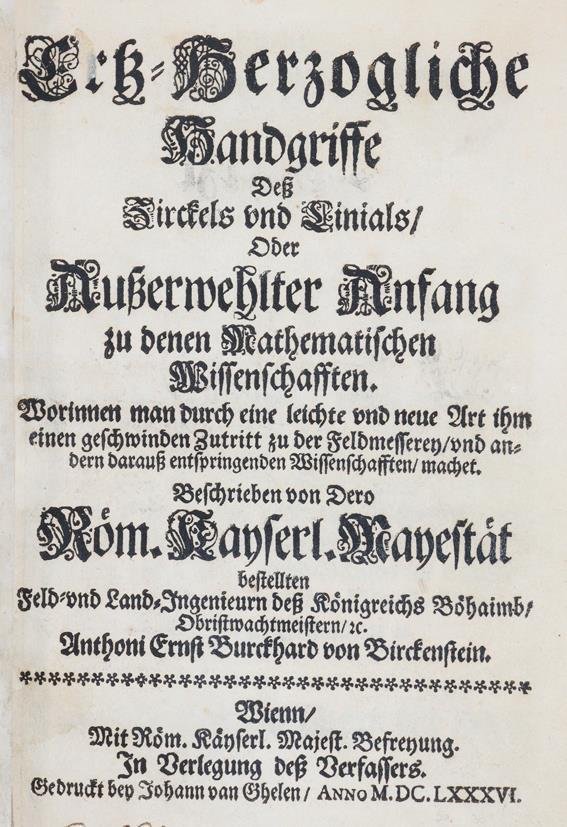 Ertz-Herzogliche
Handgriffe
Deß
Zirckels vnd Linials/
Oder
Außerwehlter Anfang
zu denen Mathematischen
Wissenschafften.
Worinnen man durch eine leichte vnd neue Art ihm
einen geschwinden Zutritt zu der Feldmesserey/vnd an-
dern darauß entspringenden Wissenschafften/ machet.
Beschrieben von Dero
Röm. Kayserl. Mayestät
bestellten
Feld-vnd Land-Ingenieurn deß Königreichs Böhaimb/
Obristwachtmeistern/ ꝛc.
Anthoni Ernst Burckhard von Birckenstein.
Wienn/
Mit Röm. Käyserl. Majest. Befreyung.
In Verlegung deß Verfassers.
Gedruckt bey Johann van Ghelen/ ANNO M.DC.LXXXVI.